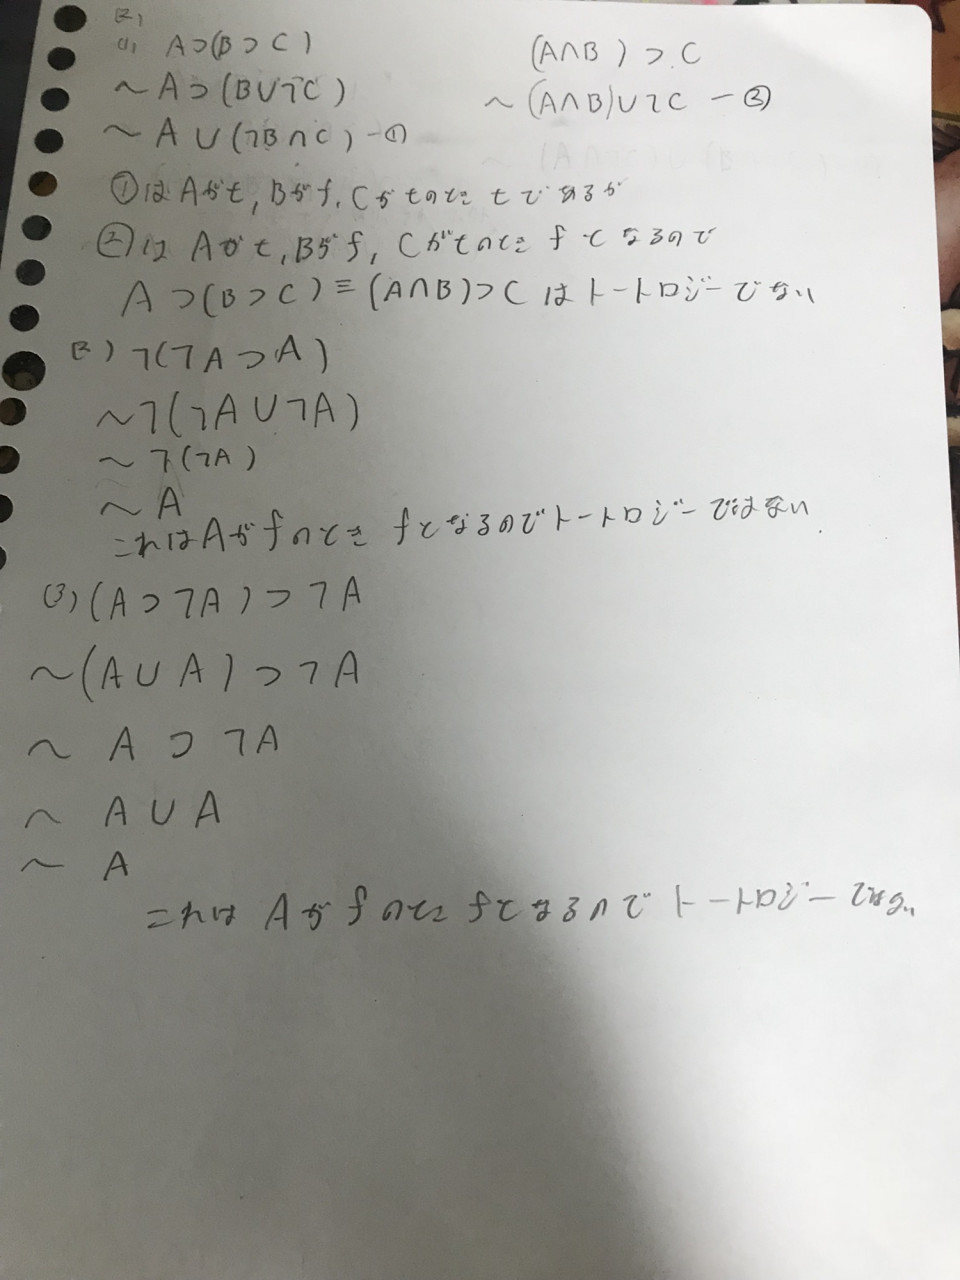 (1) A⊃(B⊃C) (A∩B)⊃C
~A⊃(B∪¬C) ~(A∩B)∪¬C -②
~A∪(¬B∩C) -①
①はAがt, Bがf, Cがtのとき tであるが
②は Aがt, Bがf, Cがtのとき fとなるので
A⊃(B⊃C)≡(A∩B)⊃C はトートロジーでない
2) ¬(¬A⊃A)
~¬(¬A∪¬A)
~¬(¬A)
~A
これはAがfのとき fとなるのでトートロジーではない.
(3) (A⊃¬A)⊃¬A
~(A∪A)⊃¬A
~ A⊃¬A
~ A∪A
~ A
これは Aがfのとき fとなるので トートロジーではない